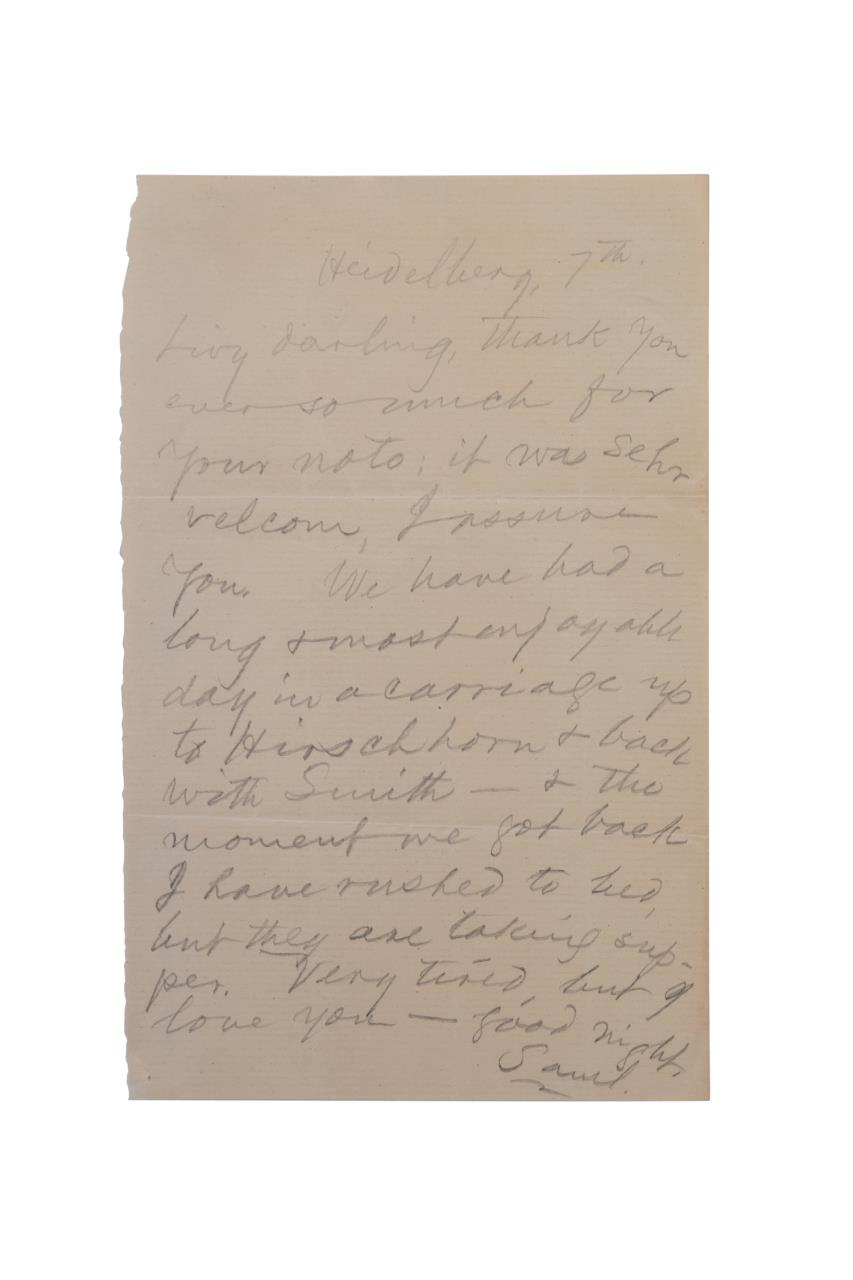 Heidelberg, 7th.
Livy darling, thank you
ever so much for
your note; it was sehr
velcom, I assure
you. We have had a
long & most enjoyable
day in a carriage up
to Hirschhorn & back
with Smith — & the
moment we got back
I have rushed to bed,
but they are taking sup-
per. Very tired, but I
love you — good night,
Saml.